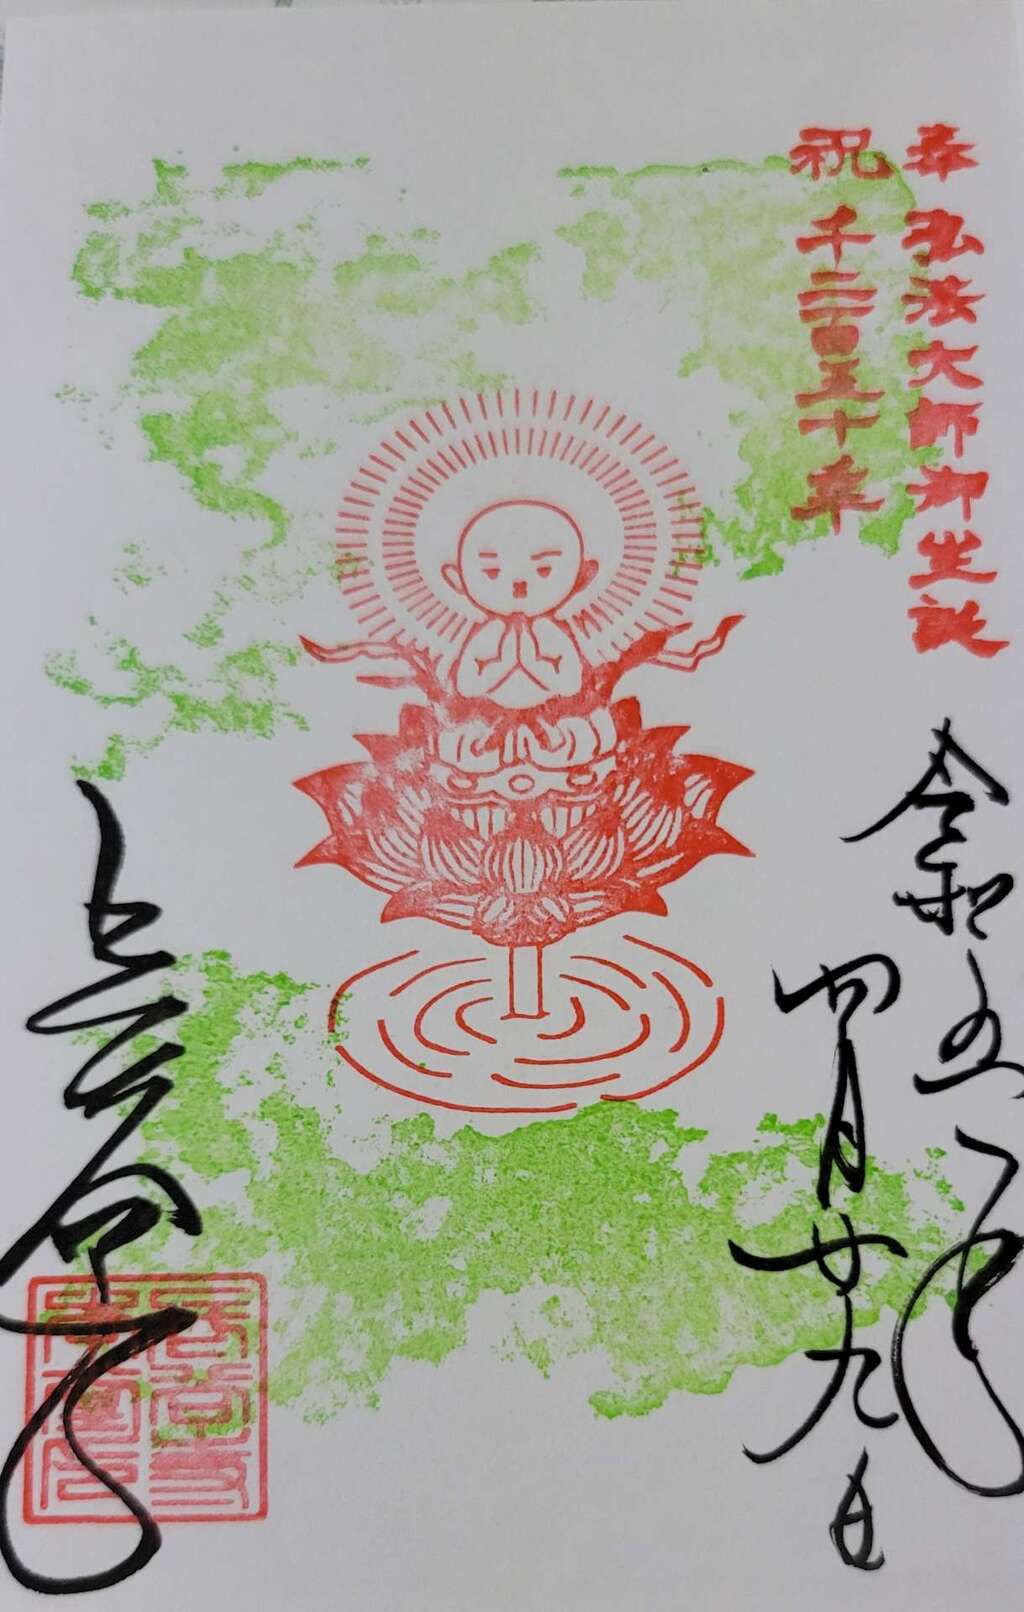 奉 弘法大師御生誕
祝 千二百五十年
令和五年
四月廿九日